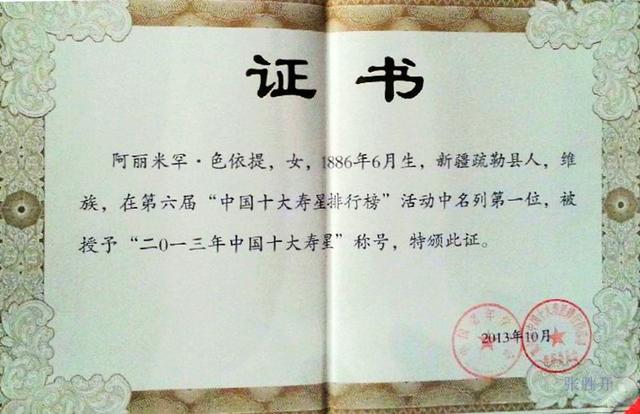 证书
阿丽米罕·色依提，女，1886年6月生，新疆疏勒县人，维
族，在第六届“中国十大寿星排行榜”活动中名列第一位，被
授予“二0一三年中国十大寿星”称号，特颁此证。
2013年10月